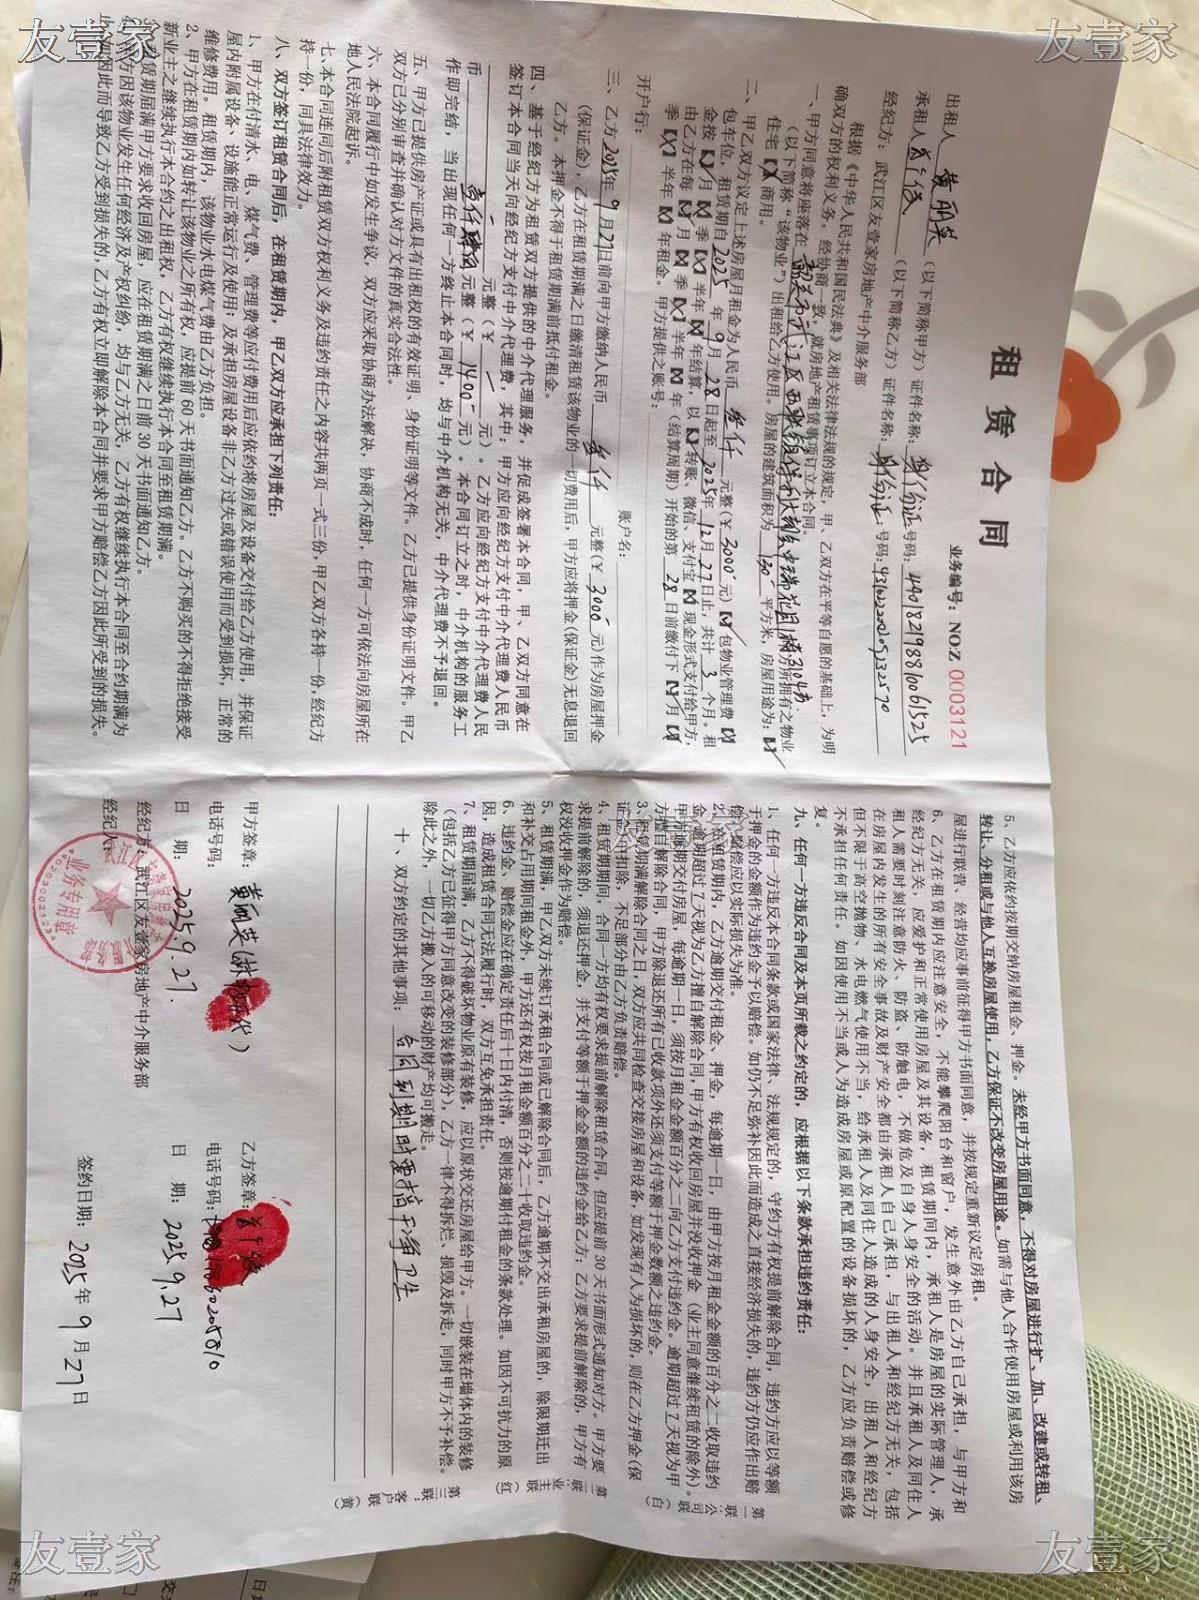 友壹家
友壹家
租赁合同
业务编号：NOZ 0003121
出租人 （以下简称甲方）证件名称：身份证 号码：440182198810061525
承租人 （以下简称乙方）证件名称：身份证 号码：
经纪方：武江区友壹家房地产中介服务部
根据《中华人民共和国民法典》及相关法律法规的规定，甲、乙双方在平等自愿的基础上，为明
确双方的权利义务，经协商一致，就房地产租赁事项订立本合同。
一、甲方同意将座落在 韶关市武江区西联镇 房所拥有之物业
（以下简称“该物业”）出租给乙方使用。房屋的建筑面积为 130 平方米，房屋用途为：
住宅 商用。
二、甲乙双方议定上述房屋月租金为人民币 叁仟 元整（￥ 3000 元） 包物业管理费
包车位，租赁期自 2025 年 9 月 28 日起至 2025 年 12 月 27 日止，共计 3 个月。租
金按 月 季 半年 年结算，以 转账、微信、支付宝 现金形式支付给甲方，
由乙方在每 月 季 半年 年（结算周期）开始的第 28 日前缴付下 月
季 半年 年租金。甲方提供之账号：
开户行： 账户名：
三、乙方 2025 年 9 月 27 日前向甲方缴纳人民币 叁仟 元整（￥ 3000 元）作为房屋押金
（保证金），乙方在租赁期满之日缴清租赁该物业的一切费用后，甲方应将押金（保证金）无息退回
乙方。本押金不得于租赁期满前抵付租金。
四、基于经纪方为租赁双方提供的中介代理服务，并促成签署本合同，甲、乙双方同意在
签订本合同当天向经纪方支付中介代理费，其中：甲方应向经纪方支付中介代理费人民币
元整（￥ 元）。乙方应向经纪方支付中介代理费人民
币 壹仟肆佰 元整（￥ 1400 元）。本合同订立之时，中介机构的服务工
作即完结，当出现任何一方终止本合同时，均与中介机构无关，中介代理费不予退回。
五、甲方已提供房产证或具有出租权的有效证明、身份证明等文件。乙方已提供身份证明文件。甲乙
双方已分别审查并确认对方文件的真实合法性。
六、本合同履行中如发生争议，双方应采取协商办法解决，协商不成时，任何一方可依法向房屋所在
地人民法院起诉。
七、本合同连同后附租赁双方权利义务及违约责任之内容共两页一式三份，甲乙双方各持一份，经纪方
持一份，同具法律效力。
八、双方签订租赁合同后，在租赁期内，甲乙双方应承担下列责任：
1、甲方在付清水、电、煤气费、管理费等应付费用后应依约将房屋及设备交付给乙方使用，并保证
屋内附属设备、设施能正常运行及使用；及承担房屋设备非乙方过失或错误使用而受到损坏，正常的
维修费用。租赁期内，该物业水电煤气费由乙方负担。
2、甲方在租赁期内如转让该物业之所有权，应提前 60 天书面通知乙方。乙方不购买的不得拒绝接受
新业主之继续执行本合约之出租权，乙方有权继续执行本合同至租赁期满。
3、租赁期届满甲方要求收回房屋，应在租赁期满之日前 30 天书面通知乙方。
4、甲方因该物业发生任何经济及产权纠纷，均与乙方无关，乙方有权继续执行本合同至合约期满为
止，如因此而导致乙方受到损失的，乙方有权立即解除本合同并要求甲方赔偿乙方因此所受到的损失。
5、乙方应依约按期交纳房屋租金、押金。未经甲方书面同意，不得对房屋进行扩、加、改建或转租、
转让、分租或与他人互换房屋使用，乙方保证不改变房屋用途。如需与他人合作使用房屋或利用该房
屋进行联营、经营均应事前征得甲方书面同意，并按规定重新议定房租。
6、乙方在租赁期内应注意安全，不能攀爬阳台和窗户，发生意外由乙方自己承担，与甲方和
经纪方无关，应爱护和正常使用房屋及其设备，租赁期间内，承租人是房屋的实际管理人，承
租人需要时刻注意防火、防盗、防触电，不做危及自身人身安全的活动。并且承租人及同住人
在房屋内发生的所有安全事故及财产安全都由承租人自己承担，与出租人和经纪方无关，包括
但不限于高空抛物、水电燃气使用不当，给承租人及同住人造成的人身安全，出租人和经纪方
不承担任何责任。如因使用不当或人为造成房屋或原配置的设备损坏的，乙方应负责赔偿或修
复。
九、任何一方违反合同及本页所载之约定的，应根据以下条款承担违约责任：
1、任何一方违反本合同条款或国家法律、法规规定的，守约方有权提前解除合同，违约方应以等额
于押金的金额作为违约金予以赔偿。如仍不足弥补因此而造成之直接经济损失的，违约方仍应作出赔
偿，赔偿应以实际损失为准。
2、在租赁期内，乙方逾期交付租金、押金，每逾期一日，由甲方按月租金金额的百分之二收取违约
金，逾期超过 7 天视为乙方擅自解除合同，甲方有权收回房屋并没收押金（业主同意继续租赁的除外）。
甲方逾期交付房屋，每逾期一日，须按月租金金额百分之二向乙方支付违约金。逾期超过 7 天视为甲
方擅自解除合同，甲方除退还所有已收款项外还须支付等额于押金数额之违约金。
3、租赁期满解除合同之日，双方应共同检查交接房屋和设备，如发现有人为损坏的，则在乙方押金（保
证金）中扣除，不足部分由乙方负责赔偿。
4、租赁期期间，合同一方均有权要求提前解除租赁合同，但应提前 30 天书面形式通知对方。甲方要
求提前解除的，须退还押金，并支付等额于押金金额的违约金给乙方；乙方要求提前解除的，甲方有
权没收押金作为赔偿。
5、租赁期满，甲乙双方未续订承租合同或已解除合同后，乙方逾期不交出承租房屋的，除限期迁出
和补交占用期间租金外，甲方还有权按月租金额百分之二十收取违约金。
6、违约金、赔偿金应在确定责任后十日内付清，否则按逾期付租金的条款处理。如因不可抗力的原
因，造成租赁合同无法履行时，双方互免承担责任。
7、租赁期届满，乙方不得破坏物业原有装修，应以原状交还房屋给甲方。一切嵌装在墙体内的装修
（包括乙方已征得甲方同意改变的装修部分），乙方一律不得拆烂、损毁及拆走，同时甲方不予补偿。
除此之外，一切乙方搬入的可移动的财产均可搬走。
十、双方约定的其他事项： 合同到期时要搞干净卫生
第一联：公司联（白）
第二联：业主联（红）
第三联：客户联（黄）
甲方签章：
电话号码：
日 期： 2025.9.27.
经纪方：武江区友壹家房地产中介服务部
经纪人：
业务专用章
乙方签章：
电话号码：
日 期： 2025.9.27
签约日期：2025 年 9 月 27 日
友壹家
友壹家